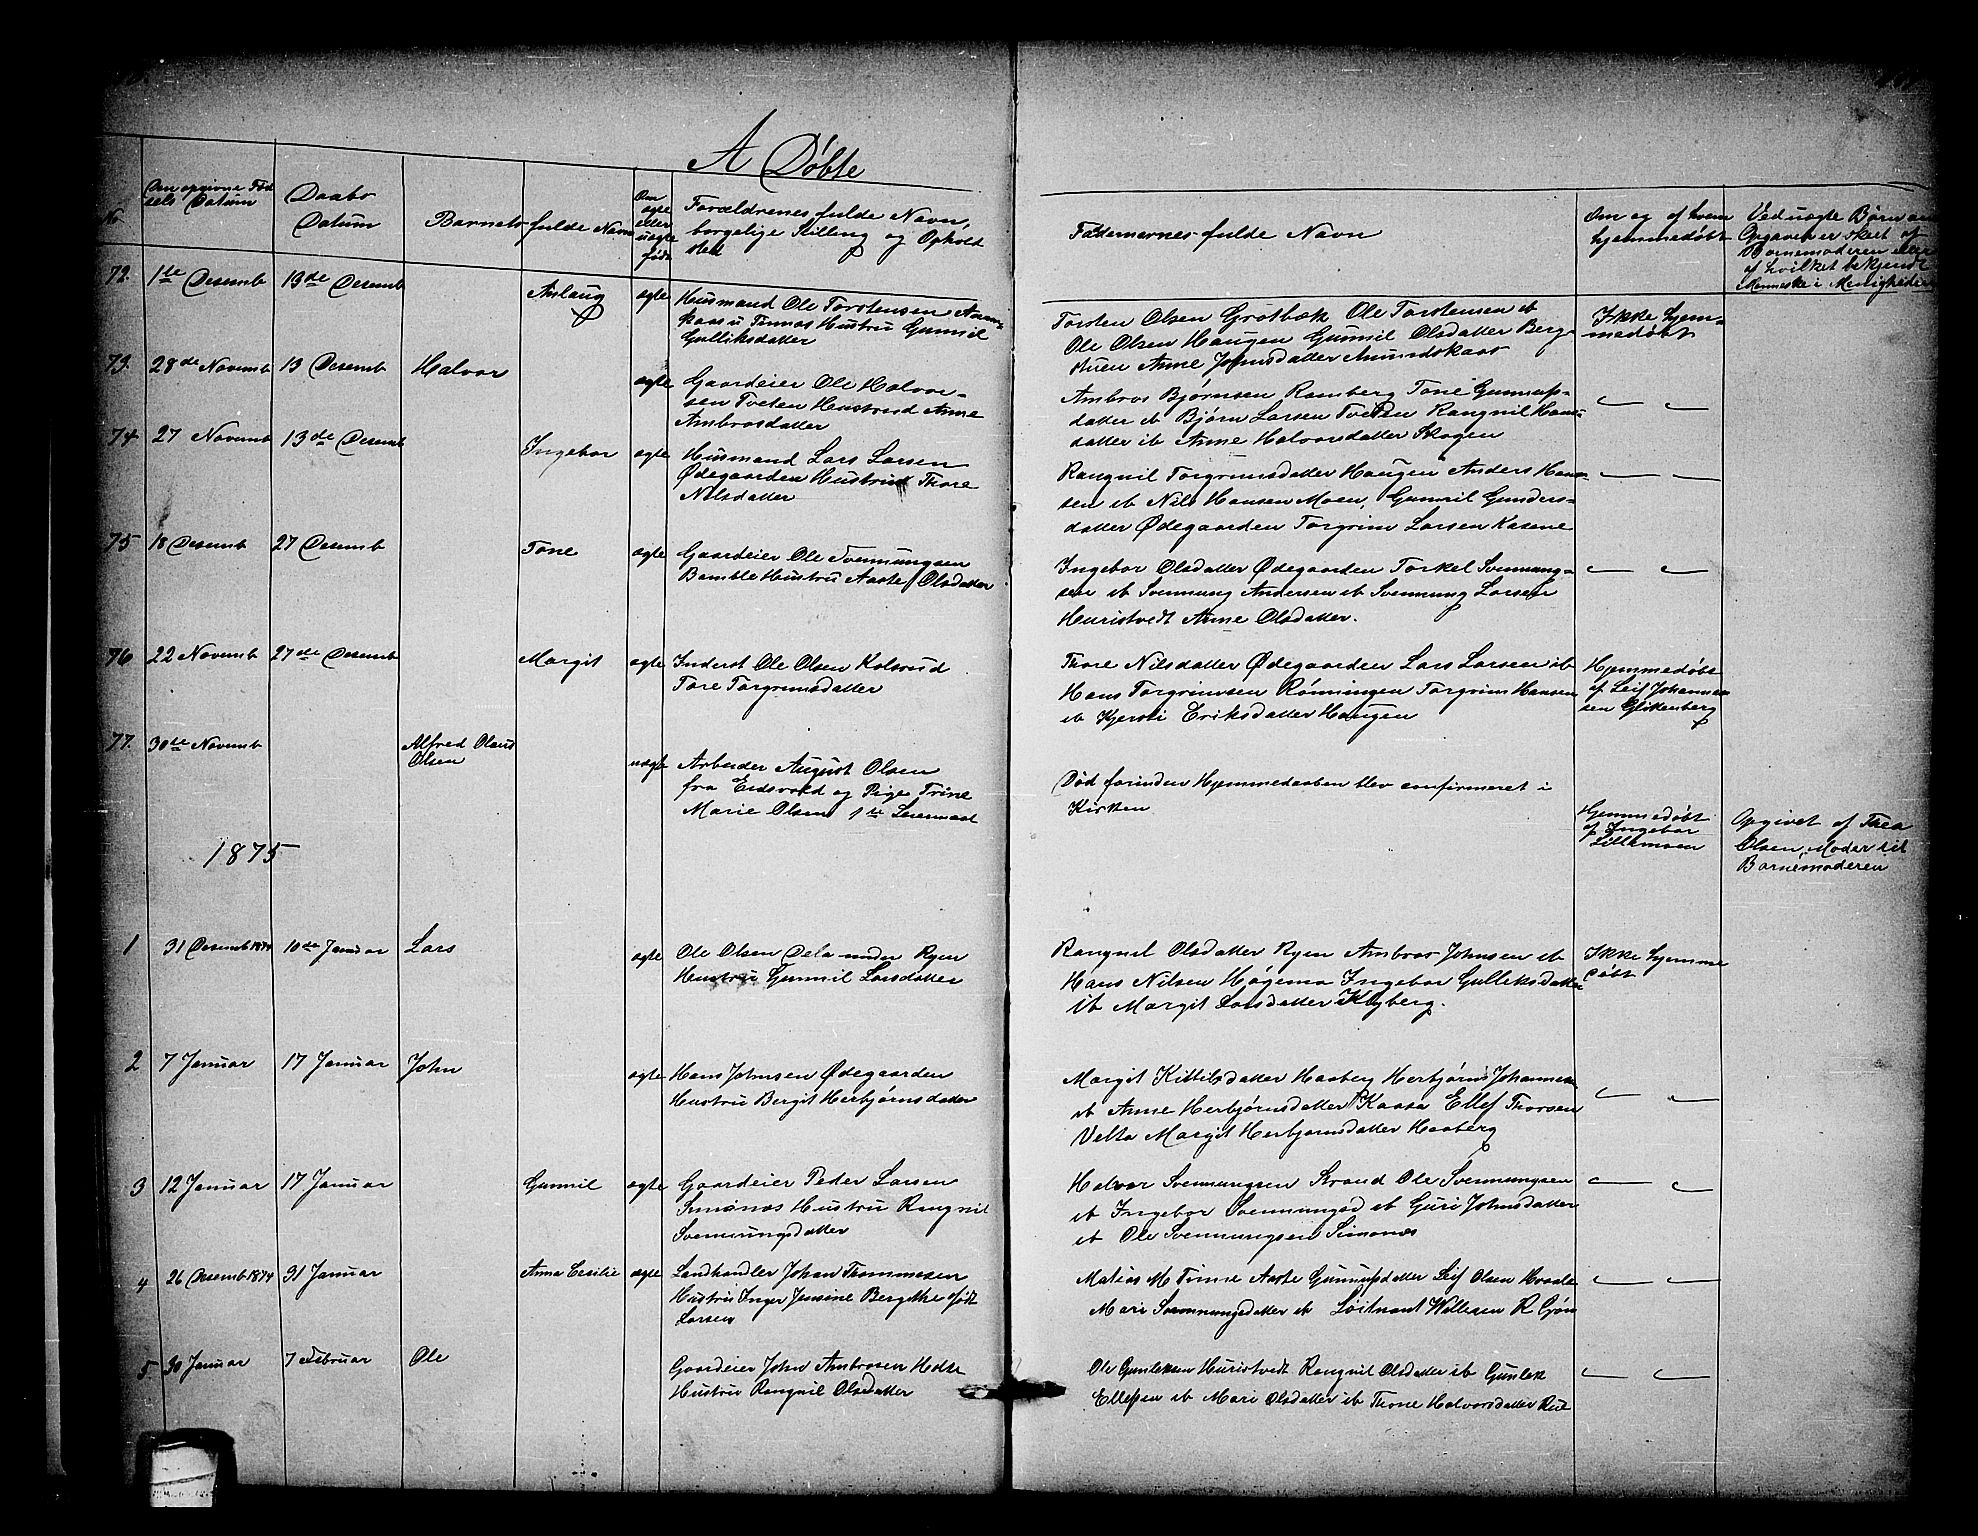 A Døbte
No.
Om opgivne Fød
sels Datum
Daabs
Datum
Barnets fulde Navn
Om
ægte
eller
uægte
født
Forældrenes fulde Navn,
borgelige Stilling og Ophold
sted
Faddernernes fulde Navn
Om og af hvem
hjemmedøbt
Ved uægte Børn om
Opgaven er skeet af
Barnemoderen eller
af hvilket bekjendt
Menneske i Menigheden
72. 1te Desemb 13de Desemb Aslaug ægte Husmand Ole Torstensen
Hustru Gunnil
Gulliksdatter
Torsten Olsen Grotbæk Ole Torstensen ib
Ole Olsen Haugen Gunnil Olsdatter Berg
stuen Anne Johnsdatter Amundskaas
Ikke hjem-
medøbt
73. 28de Novemb 13 Desemb Halvor ægte Gaardeier Ole Halvor-
sen Tveten Hustrud Anne
Ambrosdatter
Ambros Bjørnsen Ramberg Tone Gunnufs-
datter ib Bjørn Larsen Tveten Rangnil Hans
datter ib Anne Halvorsdatter Skogen
74 27 Novemb 13de Desemb Ingebor ægte Husmand Lars Larsen
Ødegaarden Hustrud Thore
Nilsdatter
Rangnil Torgrimsdatter Haugen Anders Han-
sen ib Nils Hansen Moen, Gunnil Gunders-
datter Ødegaarden Torgrim Larsen Kasene
75 18 Desemb 27 Desemb Tone ægte Gaardeier Ole Svennungsen
Bamble Hustru Aaste Olsdatter
Ingebor Olsdatter Ødegaarden Torkel Svennung-
sen ib Svennung Andersen ib Svennung Larsen
Huristvedt Anne Olsdatter.
76 22 Novemb 27de Desemb Margit ægte Inderst Ole Olsen Kolsrud
Tore Torgrimsdatter
Thore Nilsdatter Ødegaarden Lars Larsen ib
Hans Torgrimsen Rønningen Torgrim Hansen
ib Kjersti Eriksdatter Haugen
Hjemmedøbt
af Leif Johannes
sen Glittenberg
77. 30te Novemb Alfred Olaus
Olsen
uægte Arbeider August Olsen
fra Eidsvold og Pige Trine
Marie Olsen 1te Leiermaal
Død forinden Hjemmedaaben blev confirmeret i
Kirken
Hjemmedøbt
af Ingebor
Lillemoen
Opgivet af Thea
Olsen, Moder til
Barnemoderen
1875
1 31 Desemb 1874 10de Januar Lars ægte Ole Olsen Dela under Ryen
Hustru Gunnil Larsdatter
Rangnil Olsdatter Ryen Ambros Johnsen ib
Hans Nilsen Høgemo Ingebor Gulliksdatter
ib Margit Larsdatter Kyberg.
Ikke hjemme
døbt
2 7 Januar 17 Januar John ægte Hans Johnsen Ødegaarden
Hustru Bergit Herbjørnsdatter
Margit Kittilsdatter Haaberg Herbjørn Johannesen
ib Anne Herbjørnsdatter Kaasa Ellef Thorsen
Velta Margit Herbjørnsdatter Haaberg
3 12 Januar 17 Januar Gunnil ægte Gaardeier Peder Larsen
Simones Hustru Rangnil
Svennungsdatter
Halvor Svennungsen Strand Ole Svennungsen
ib Ingebor Svennungsd ib Guri Johnsdatter
ib Ole Svennungsen Simones
4 26 Desemb 1874 31 Januar Anna Cesilie ægte Landhandler Johan Thommesen
Hustru Inger Jensine Bergithe født
Larsen
Matias M Tinne Aaste Gunnufsdatter Leif Olsen
Mari Svennungsdatter ib Løitnant Willesen R Gjøn
5 30 Januar 7 Februar Ole
Gaardeier John Ambrosen Holte
Hustru Rangnil Olsdatter
Ole Gunleksen Huristvedt Rangnil Olsdatter ib Gunlek
Ellefsen ib Mari Olsdatter ib Thone Halvorsdatter Rue